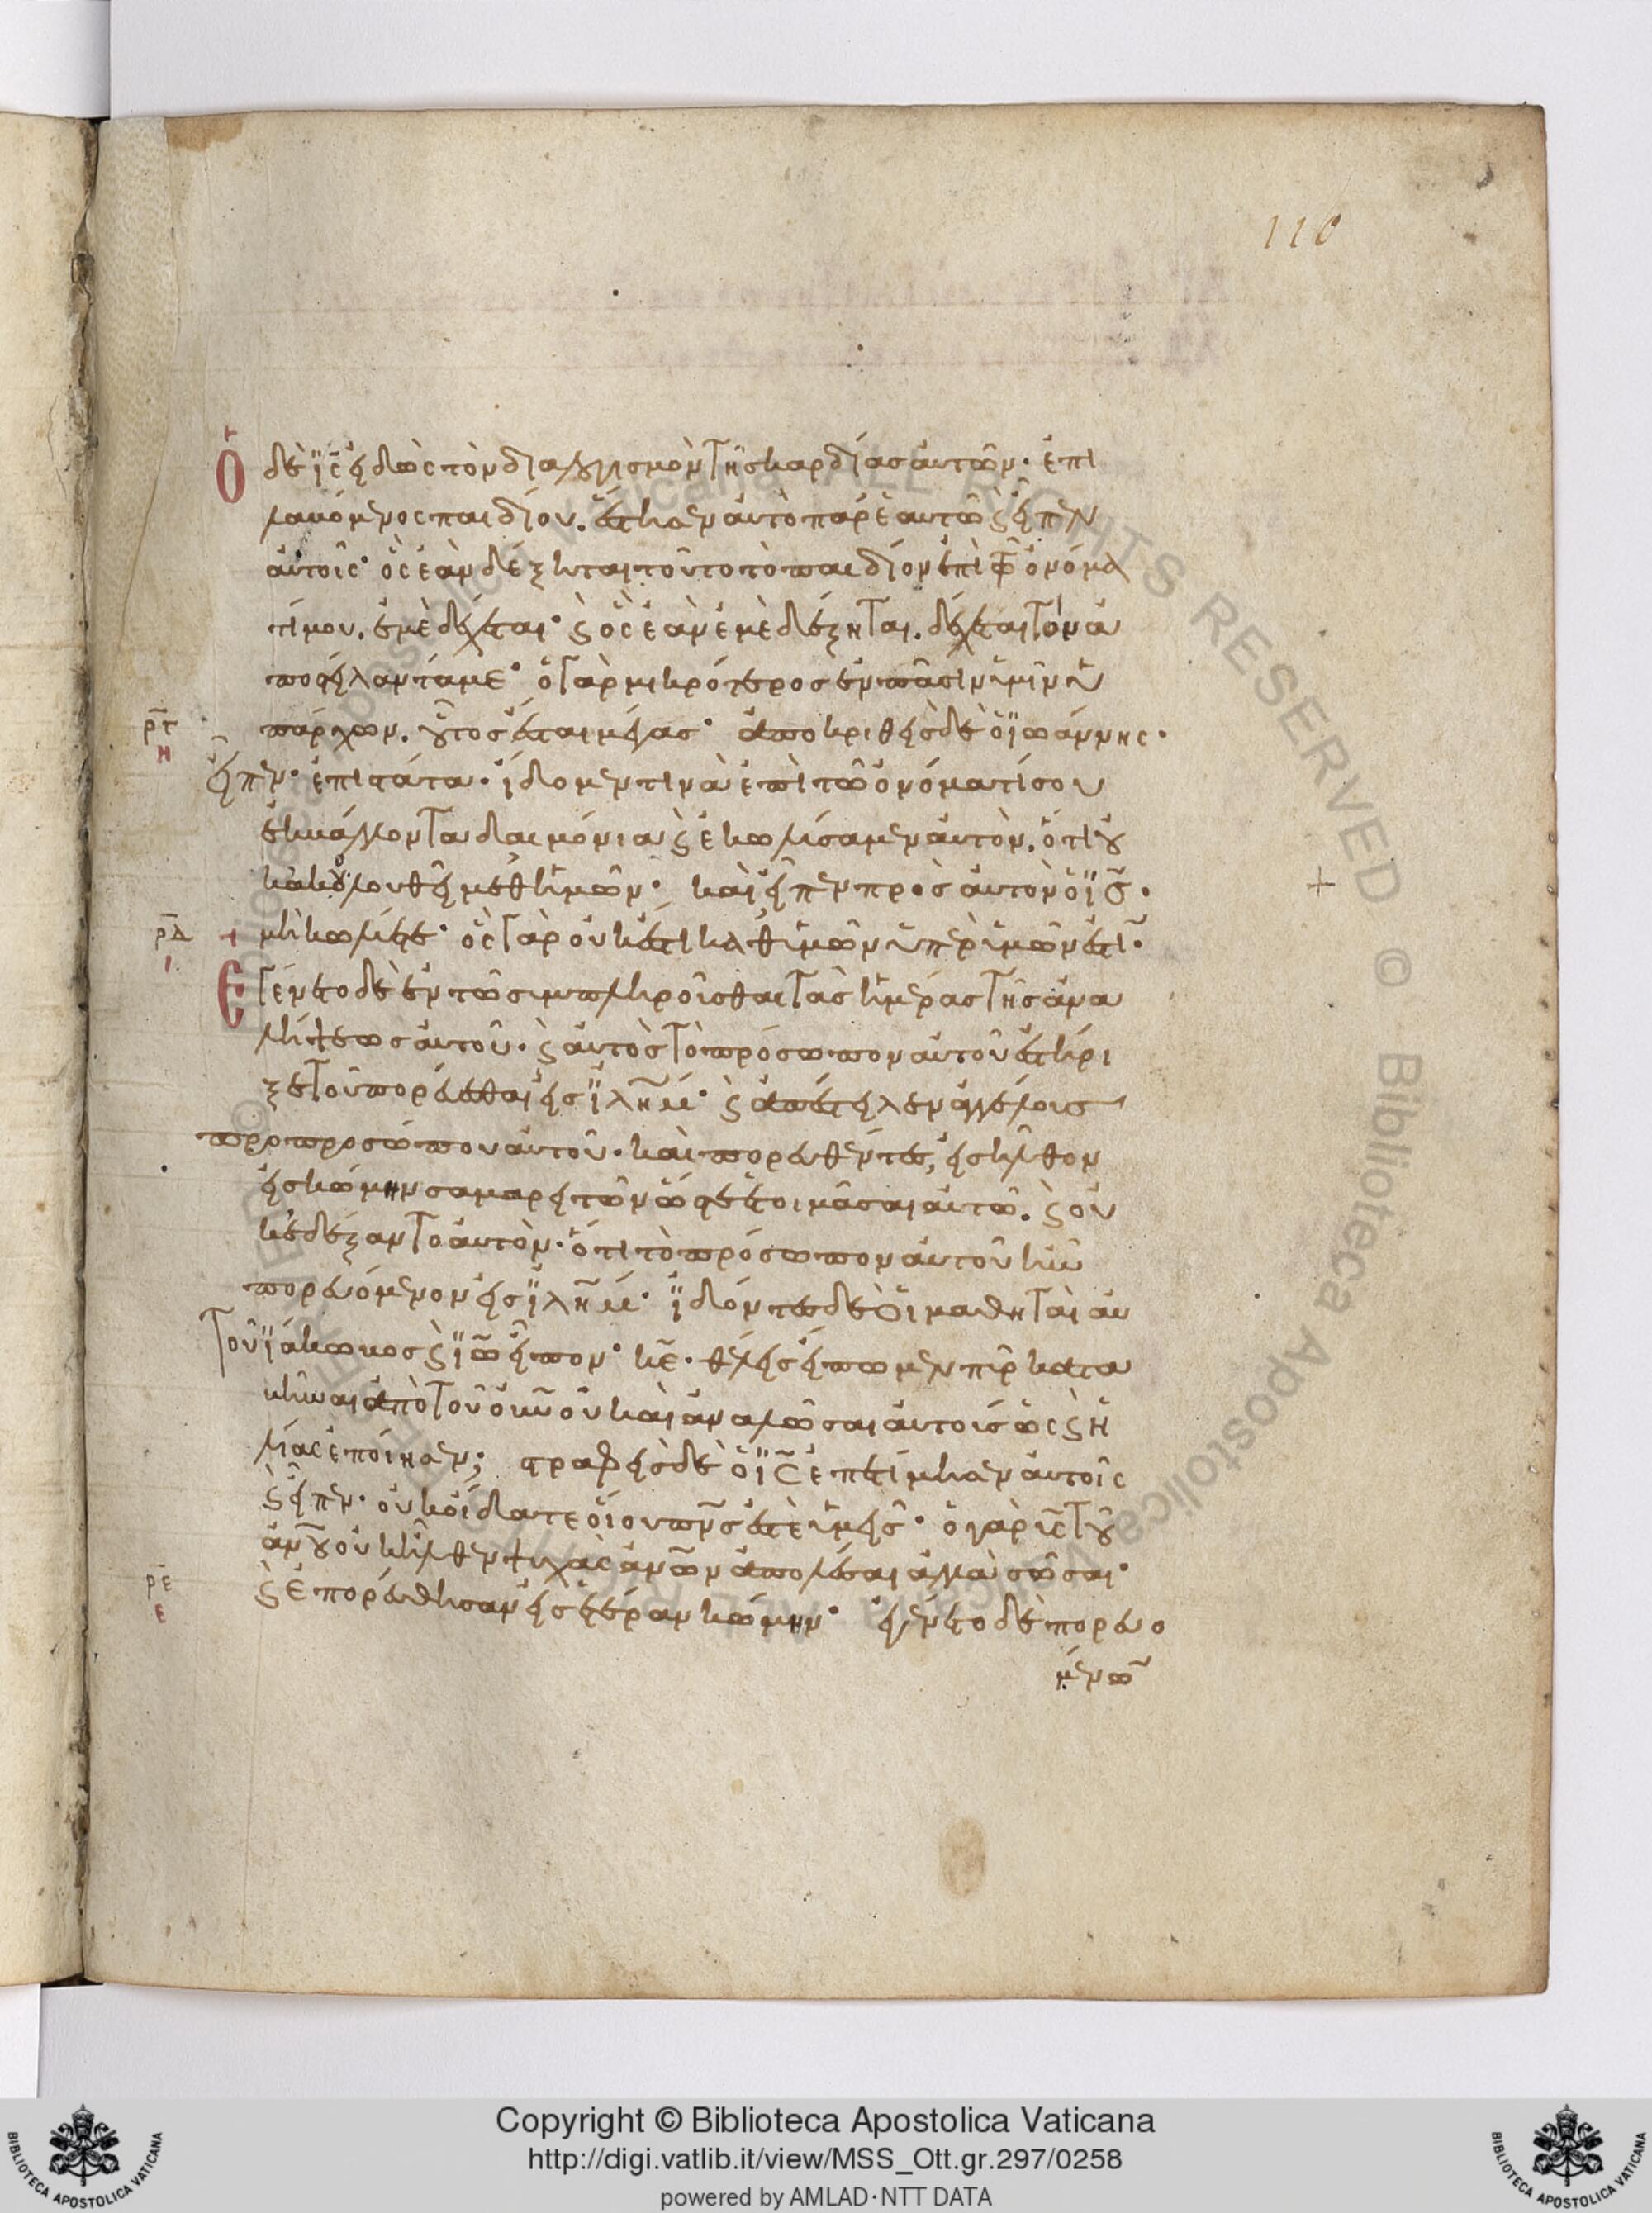 110
Ὁ δὲ ἰ̈ς̅ εἰδὼς τὸν διαλογισμὸν τῆς καρδίας αὐτῶν· ἐπι
λαβόμενος παιδίου. ἔστησεν αὐτὸ παρ' ἑαυτῶ ϗ εἶπεν
αὐτοῖς· ὃς ἐὰν δέξηται τοῦτο τὸ παιδίον ἐπὶ τῶ ὀνόμα
τί μου. ἐμὲ δέχεται· ϗ ὃς ἐὰν ἐμὲ δέξηται. δέχεται τὸν ἀ
ποστείλαντά με· ὁ γὰρ μικρότερος ἐν πᾶσιν ὑμῖν ὑ
ρ̅γ πάρχων. οὗτος ἔσται μέγας· ἀποκριθεὶς δὲ ὁ ἰ̈ωάννης·
η εἶπεν· ἐπιστάτα· εἴδομεν τινὰ ἐπὶ τῶ ὀνόματί σου
ἐκβάλλοντα δαιμόνια ϗ ἐκωλύσαμεν αὐτὸν. ὅτι οὐ
κ ἀκολουθεῖ μεθ' ἡμῶν· καὶ εἶπεν πρὸς αὐτὸν ὁ ἰ̈ς̅·
ρ̅δ μὴ κωλύετε· ὃς γὰρ οὐκ ἔστι καθ' ἡμῶν ὑπὲρ ἡμῶν ἐστι·
ι Ἐγένετο δὲ ἐν τῶ συμπληροῦσθαι τὰς ἡμέρας τῆς ἀνα
λήψεως αὐτοῦ· ϗ αὐτὸς τὸ πρόσωπον αὐτοῦ ἐστήρι
ξε τοῦ πορεύεσθαι εἰς ἰ̈λη̅μ· ϗ ἀπέστειλεν ἀγγέλους
προ προσώπου αὐτοῦ· καὶ πορευθέντες, εἰσῆλθον
εἰς κώμην σαμαρειτῶν ὥστε ἑτοιμᾶσαι αὐτῶ. ϗ οὐ
κ ἐδέξαντο αὐτὸν· ὅτι τὸ πρόσωπον αὐτοῦ ἦν
πορευόμενον εἰς ἰ̈λη̅μ· ἰ̈δόντες δὲ ὁι μαθηταὶ αὐ
τοῦ ἰ̈άκωβος ϗ ἰ̈ω̅ εἶπον· κ̅ε· θέλεις εἴπωμεν πῦρ κατα
βῆναι ἀπὸ τοῦ οὐν̅οῦ καὶ ἀναλῶσαι αὐτοὺς ὡς ϗ Ἠ
λίας ἐποίησεν; στραφεὶς δὲ ὁ ἰ̈ς̅ ἐπετίμησεν αὐτοῖς
ϗ εἶπεν· οὐκ οἴδατε ὁίου πν̅ς ἐστὲ ὑμεῖς· ὁ γὰρ υἱ̅ς τοῦ
ἀν̅ου οὐκ ἦλθεν ψυχὰς ἀν̅ων ἀπολέσαι ἀλλὰ σῶσαι·
ρ̅ε ϗ ἐπορεύθησαν εἰς ἑτέραν κώμην· ἐγένετο δὲ πορευο
ε μένων
Copyright © Biblioteca Apostolica Vaticana
http://digi.vatlib.it/view/MSS_Ott.gr.297/0258
powered by AMLAD·NTT DATA